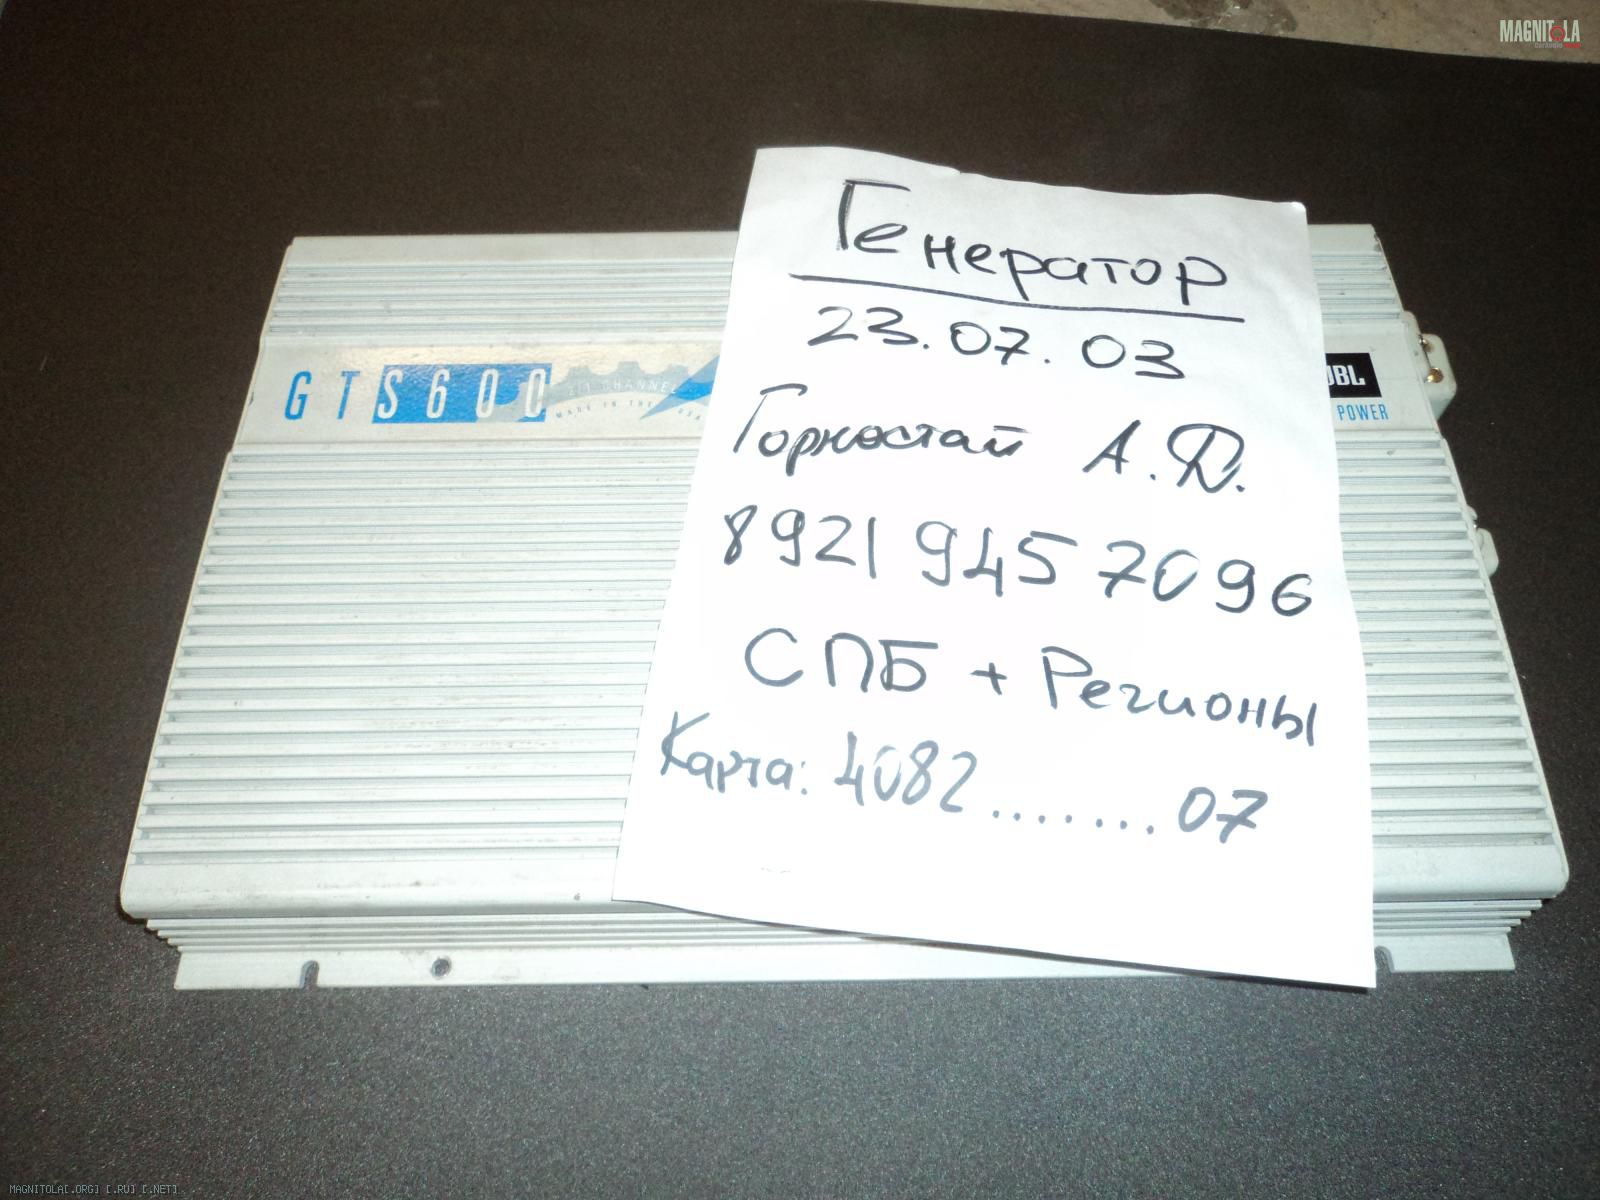 MAGNITOLA
GTS600
2/1 CHANNEL
MADE IN THE USA
JBL
POWER
Генератор
23.07.03
Горностай А.Д.
8921 945 7096
СПБ + Регионы
Карта: 4082.......07
MAGNITOLA[.ORG] [.RU] [.NET]